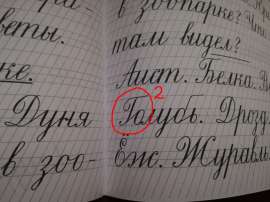 еты.
ке.
Дуня
в зоо-
в зоопарке? Что
там видел?
Аист. Белка. В
Голубь. Дрозд.
2
Ёж. Журавл